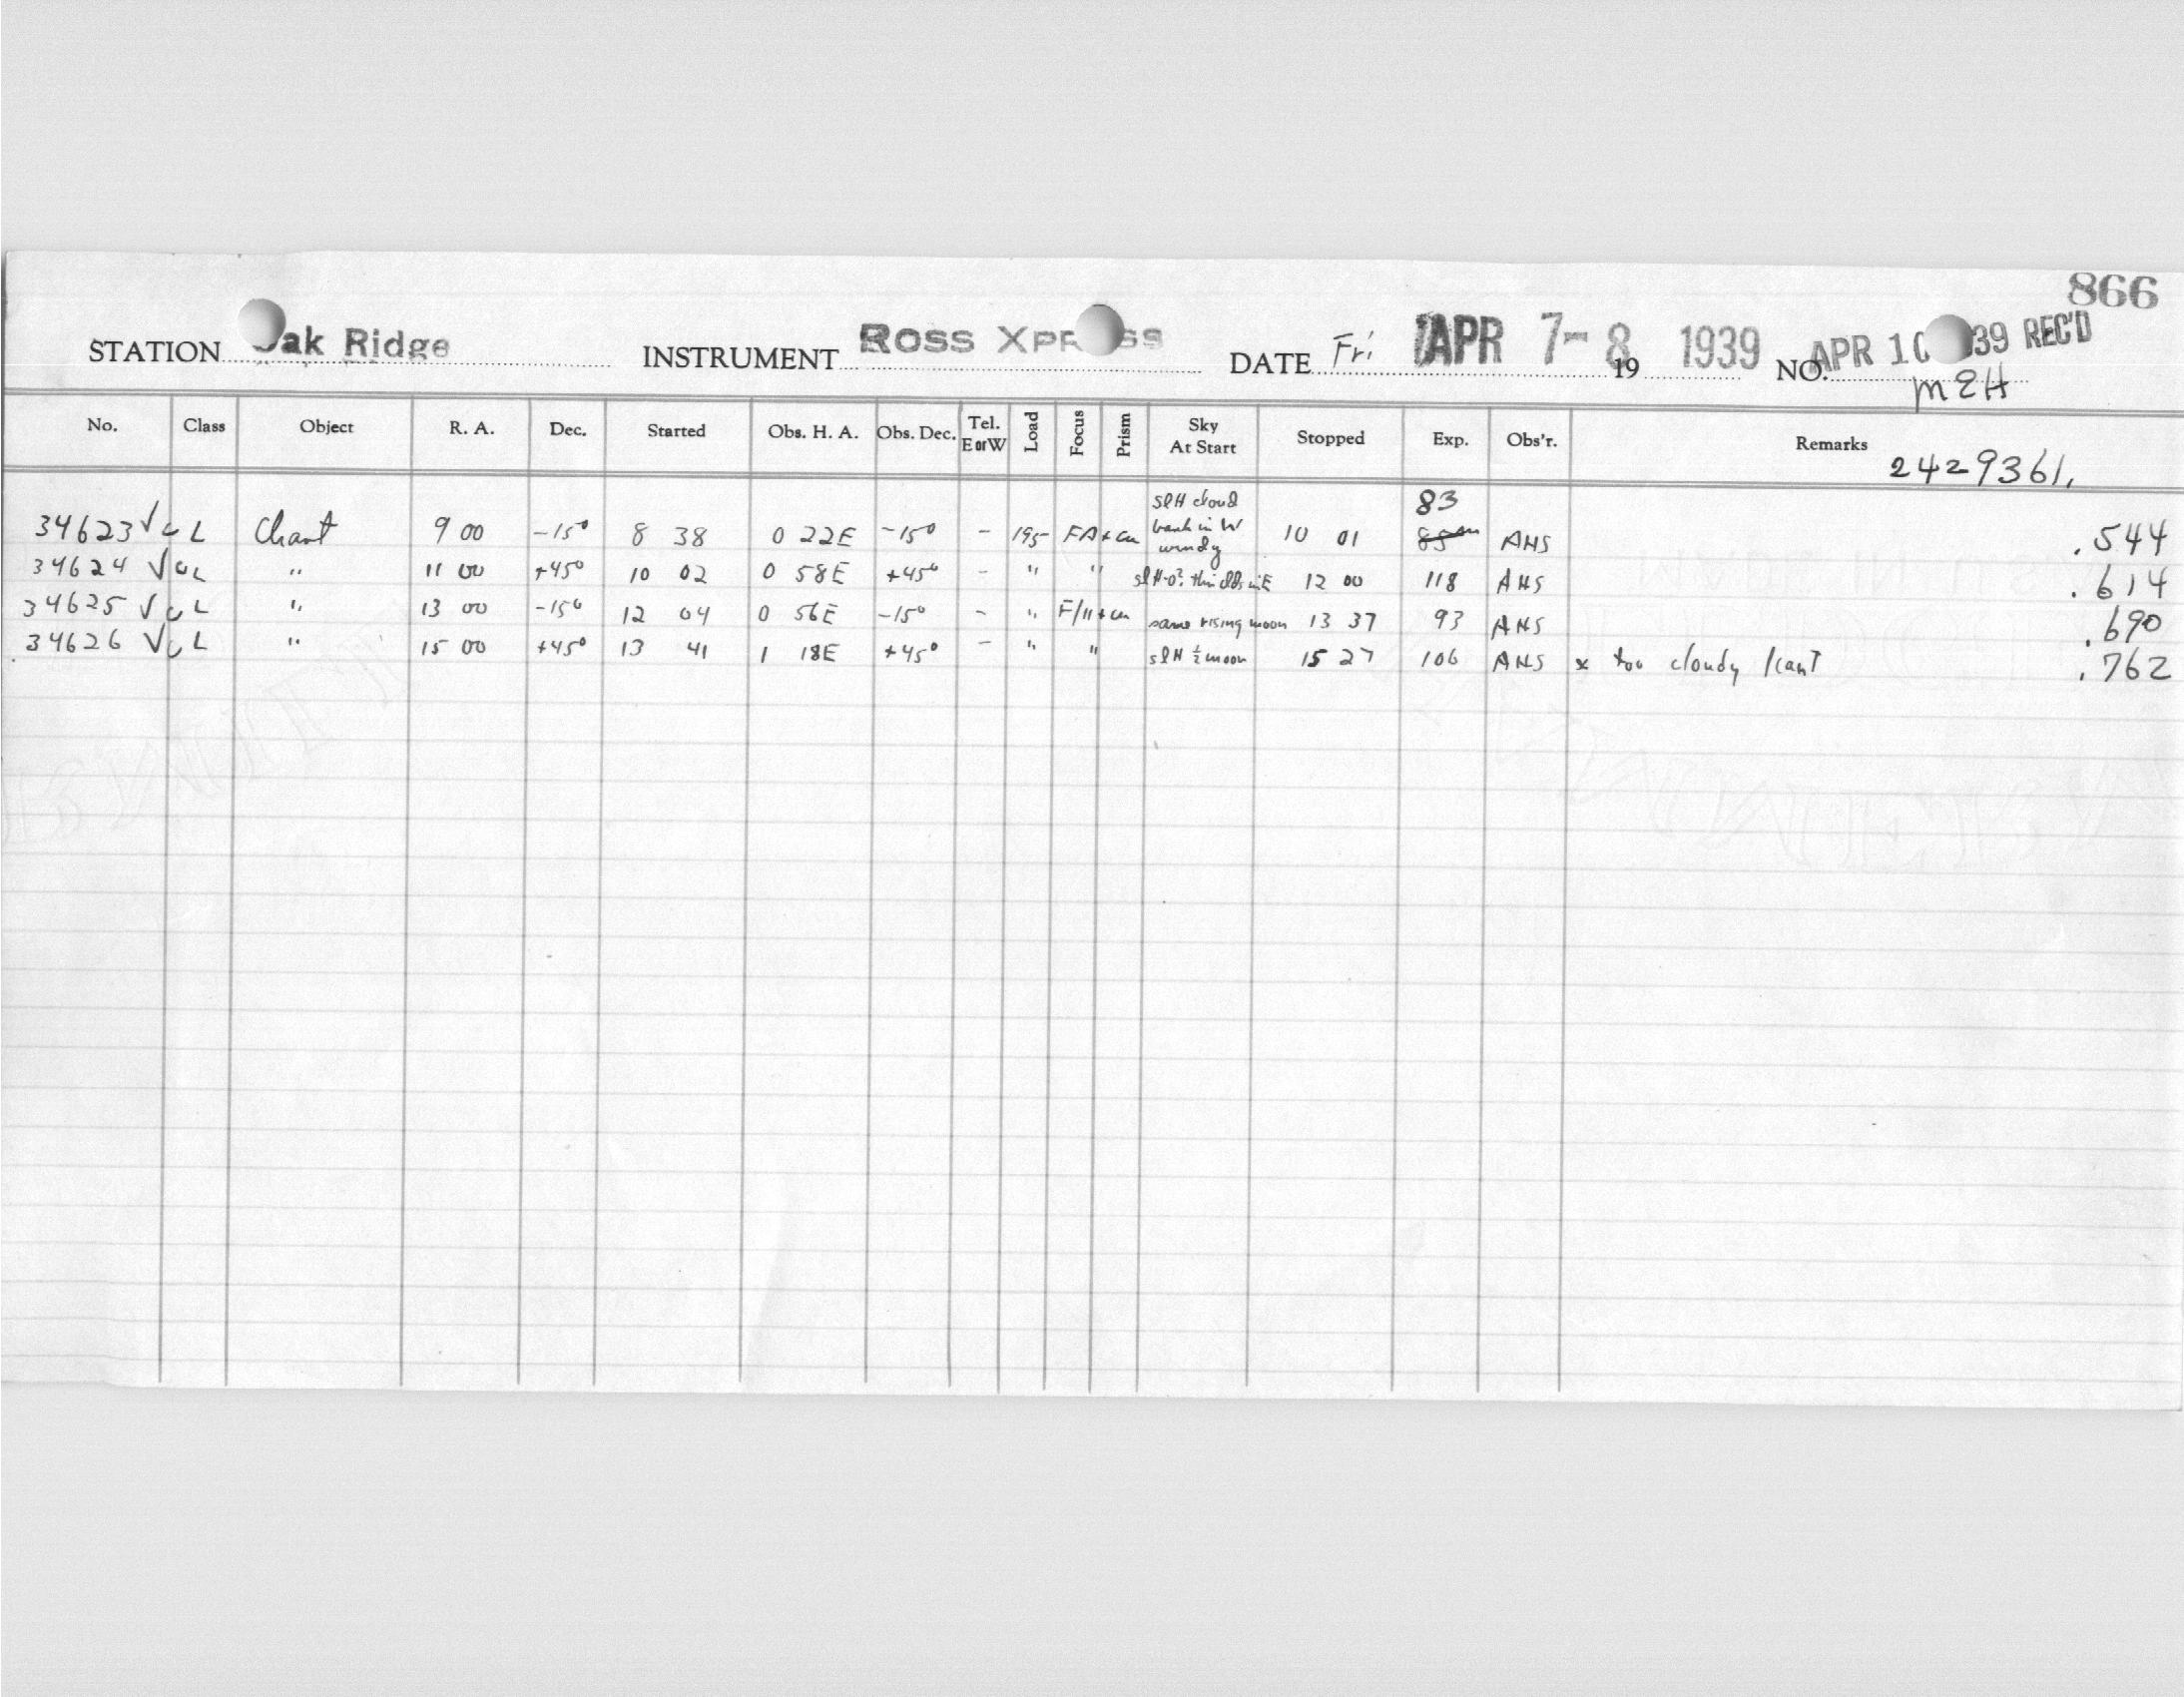 866
STATION Oak Ridge INSTRUMENT ROSS XPRESS DATE Fri APR 7-8 1939 19 NO. APR 10 39 REC'D
MEH
No. Class Object R. A. Dec. Started Obs. H. A. Obs. Dec. Tel. E or W Load Focus Prism Sky At Start Stopped Exp. Obs'r. Remarks
2429361.
34623 √ C L Chart 9 00 -15° 8 38 0 22E -15° - 195- FA+cu slH cloud bank in W windy 10 01 83 ANS .544
34624 √ C L " 11 00 +45° 10 02 0 58E +45° - " " slH-0? thin clds in E 12 00 118 ANS .614
34625 √ C L " 13 00 -15° 12 04 0 56E -15° - " F/11+cu same rising moon 13 37 93 ANS .690
34626 √ C L " 15 00 +45° 13 41 1 18E +45° - " " slH ½ moon 15 27 106 ANS x too cloudy .762